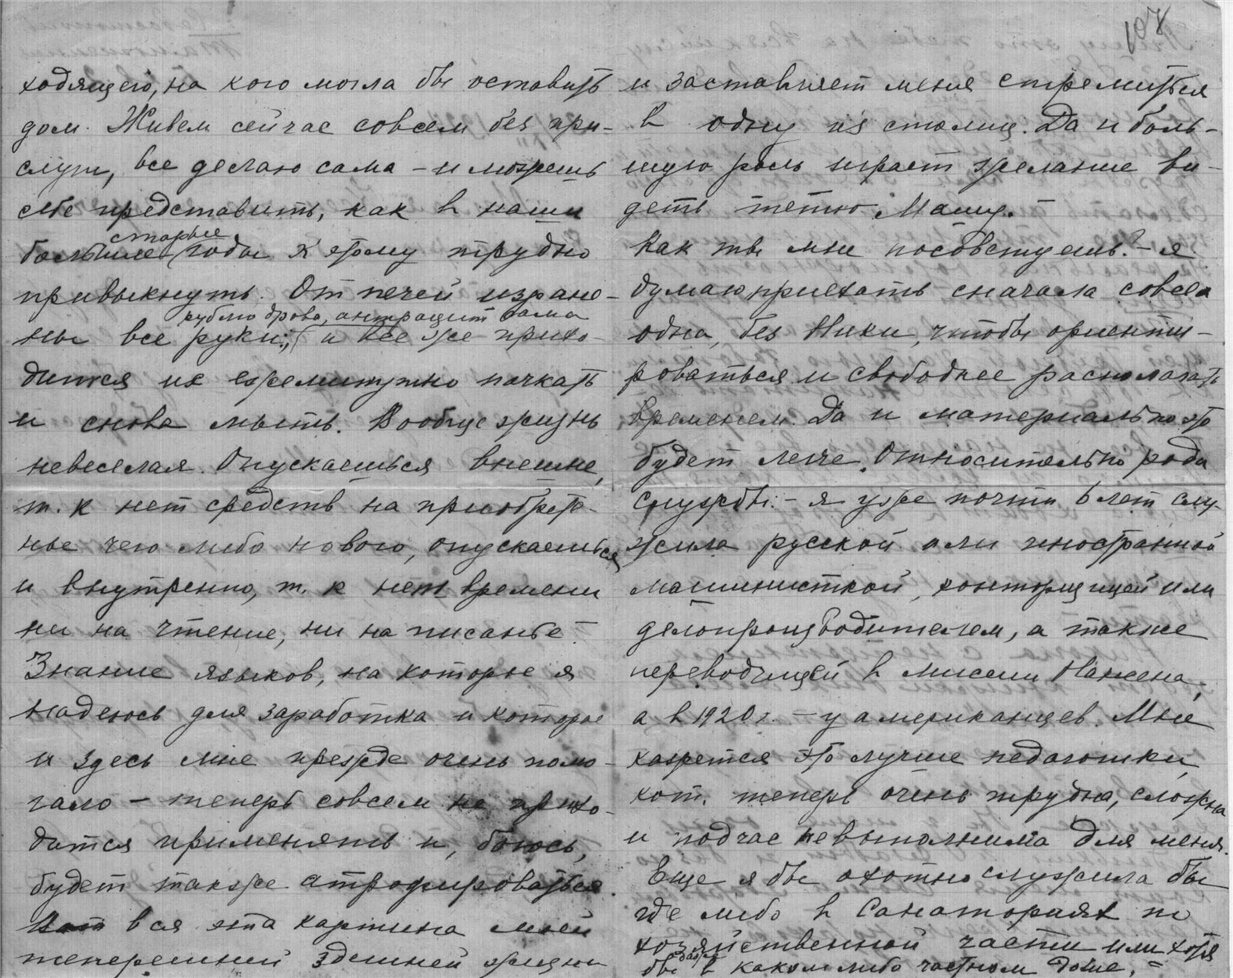 107
ходящего, на кого могла бы оставить
дом. Живем сейчас совсем без при-
слуги, все делаю сама – и можешь
себе представить, как в наши
большие старые годы к этому трудно
привыкнуть. От печей изране-
ны все руки, рублю дрова, антрацит сама
а все же прихо-
дится их ежеминутно пачкать
и снова мыть. Вообще жизнь
невеселая. Опускаешься внешне,
т. к нет средств на приобрете-
нье чего либо нового, опускаешься
и внутренно, т. к нет времени
ни на чтение, ни на писанье –
Знание языков, на которое я
надеюсь для заработка и которое
и здесь мне прежде очень помо-
гало – теперь совсем не прихо-
дится применять и, боюсь,
будет также атрофироваться.
Вот вся эта картина моей
теперешней здешней жизни
и заставляет меня стремиться
в одну из столиц. Да и боль-
шую роль играет желание ви-
деть тетю Машу.
Как ты мне посоветуешь? – я
думаю приехать сначала совсем
одна, без Ники, чтобы ориенти-
роваться и свободнее располагать
временем. Да и материально это
будет легче. Относительно рода
службы – я уже почти 6 лет слу-
жила русской или иностранной
машинисткой, конторщицей или
делопроизводителем, а также
переводчицей в миссии Нансена,
а в 1920 г. – у американцев. Мне
кажется это лучше педагогики,
кот. теперь очень трудна, сложна
и подчас невыполнима для меня.
Еще я бы охотно служила бы
где либо в санаториях по
хозяйственной части или хотя
бы в каком либо частном доме –